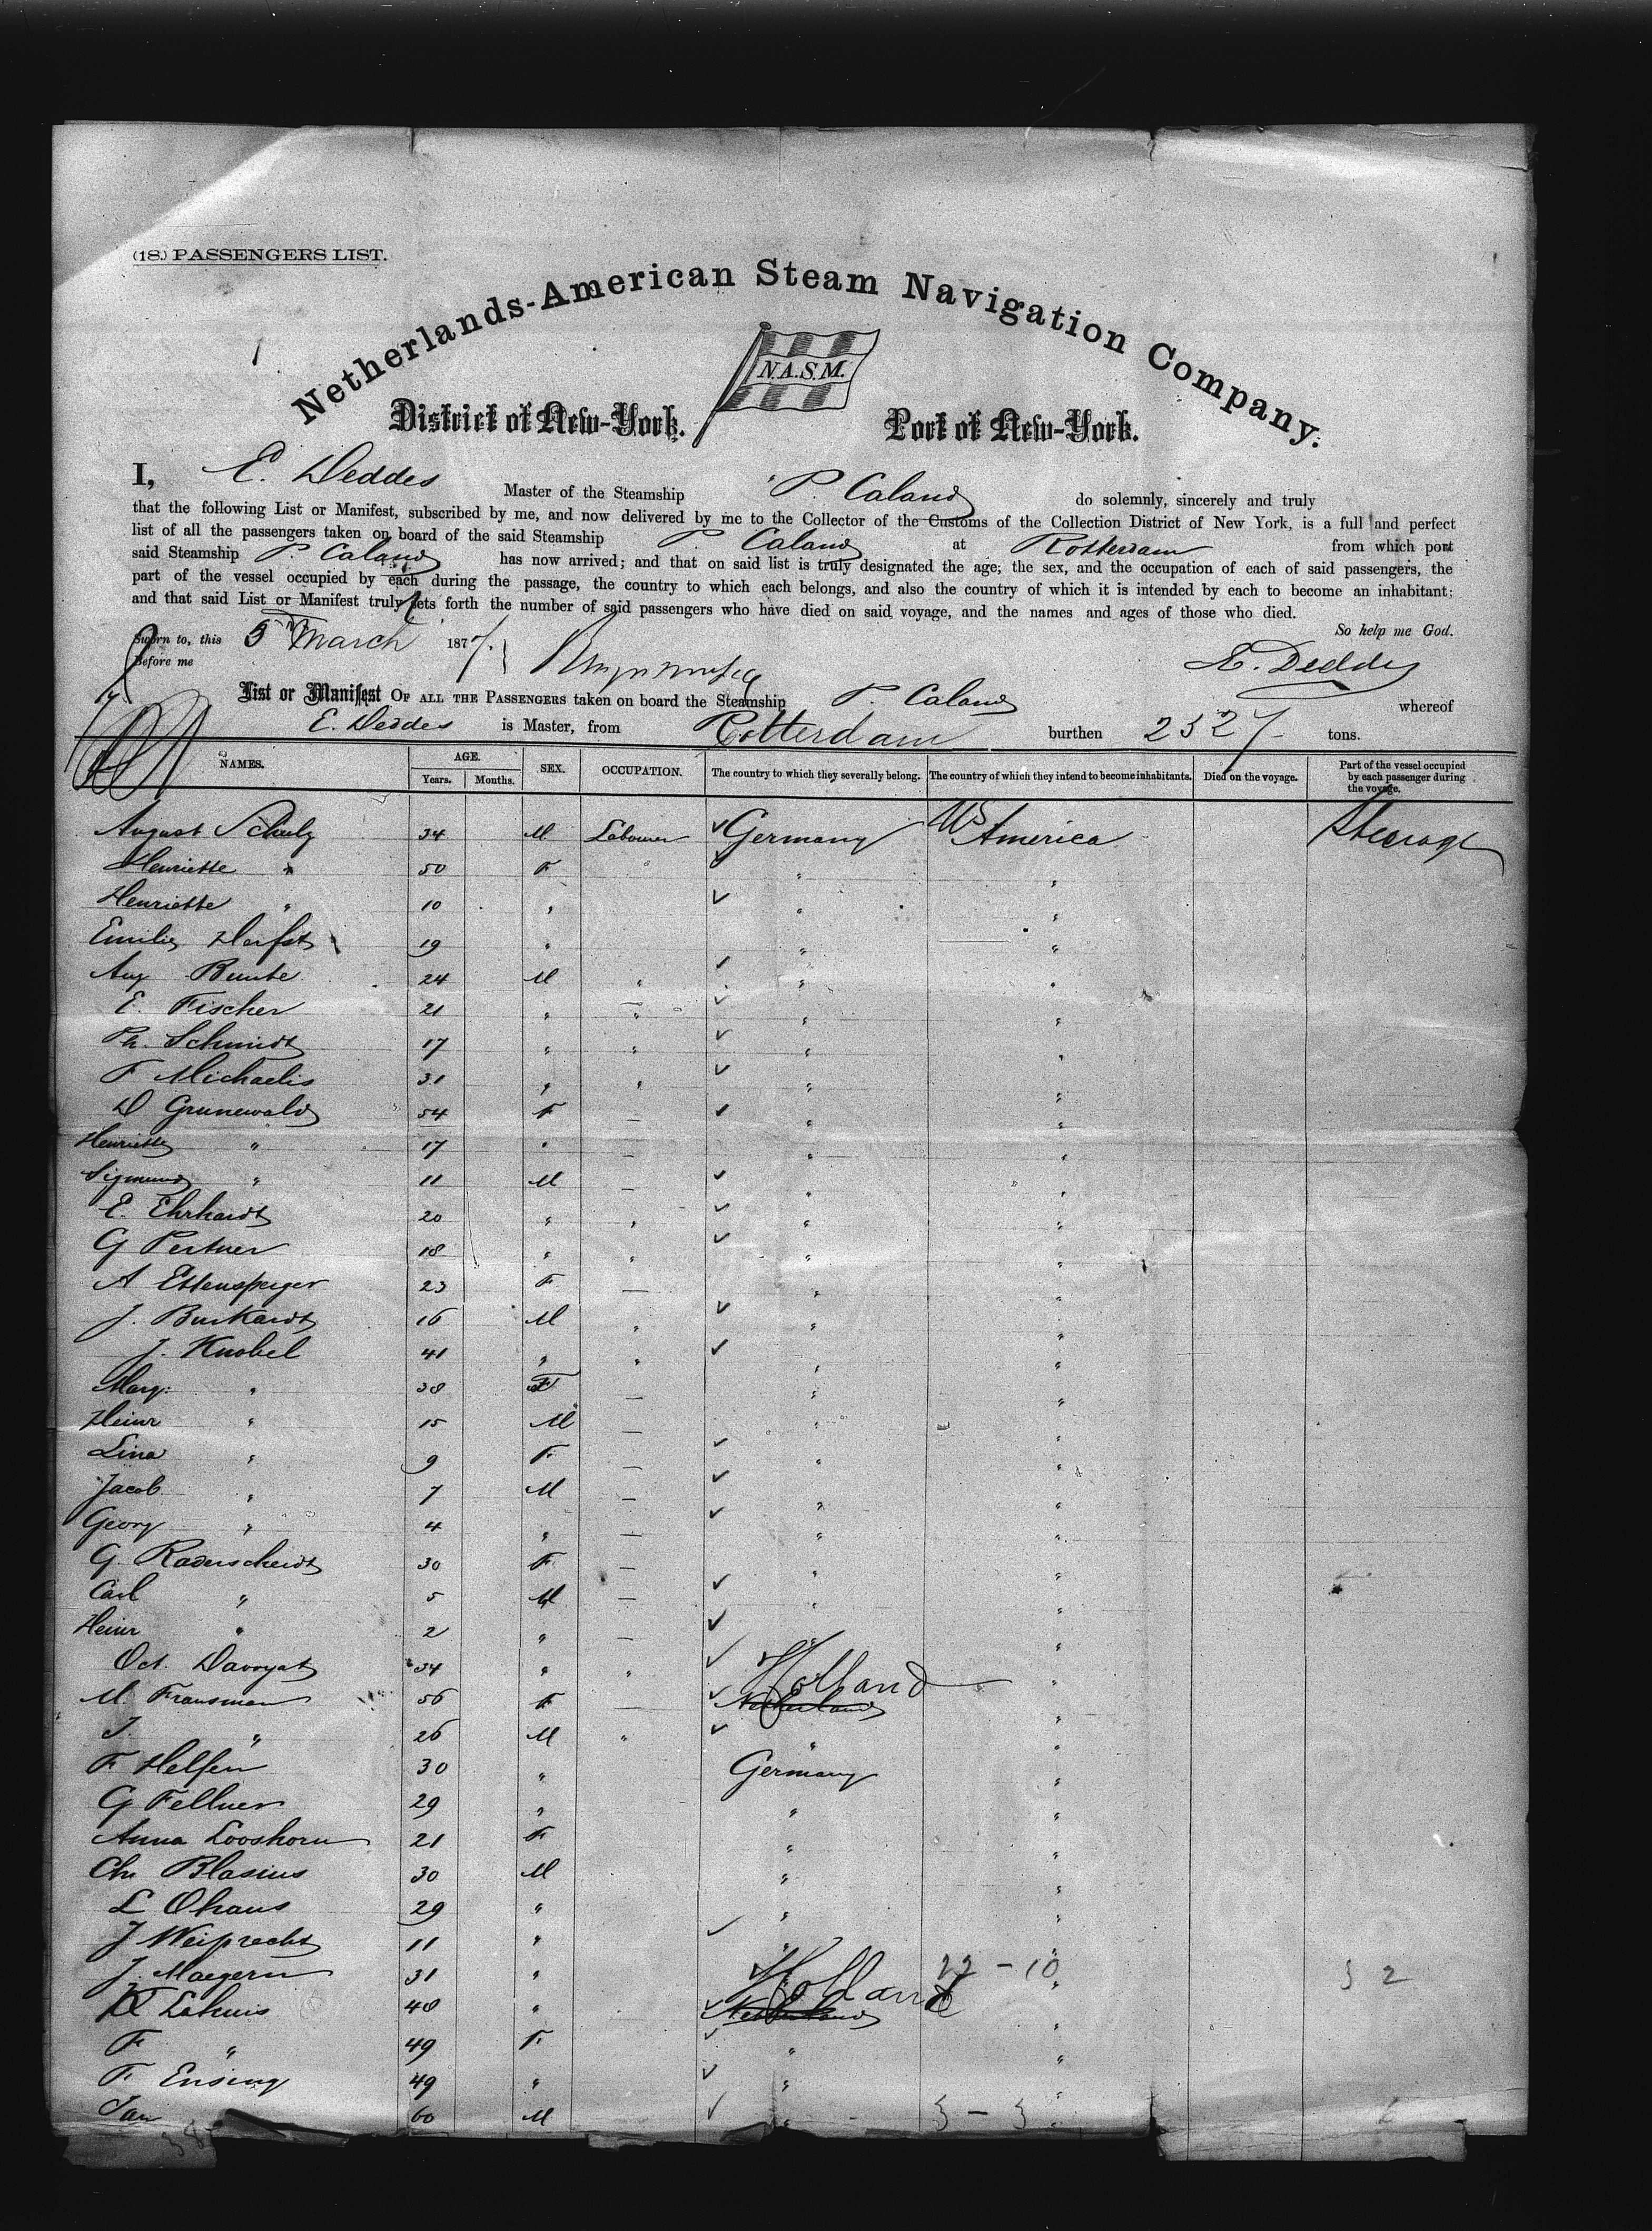 (18.) PASSENGERS LIST.
Netherlands-American Steam Navigation Company.
N.A.S.M.
District of New-York. Port of New-York.
I, E. Deddes Master of the Steamship P. Caland do solemnly, sincerely and truly
that the following List or Manifest, subscribed by me, and now delivered by me to the Collector of the Customs of the Collection District of New York, is a full and perfect
list of all the passengers taken on board of the said Steamship P. Caland at Rotterdam from which port
said Steamship P. Caland has now arrived; and that on said list is truly designated the age; the sex, and the occupation of each of said passengers, the
part of the vessel occupied by each during the passage, the country to which each belongs, and also the country of which it is intended by each to become an inhabitant;
and that said List or Manifest truly sets forth the number of said passengers who have died on said voyage, and the names and ages of those who died.
So help me God.
Sworn to, this 5 March 1877.
Before me E. Deddes
List or Manifest OF ALL THE PASSENGERS taken on board the Steamship P. Caland whereof
E. Deddes is Master, from Rotterdam burthen 2527 tons.
NAMES. AGE. Years. Months. SEX. OCCUPATION. The country to which they severally belong. The country of which they intend to become inhabitants. Died on the voyage. Part of the vessel occupied by each passenger during the voyage.
August Schulz 34 M Labourer Germany US America Steerage
Henriette " 50 F " "
Henriette " 10 " " "
Emilie Herfst 19 " " "
Aug Bunte 24 M " " "
E. Fischer 21 " " " "
Ph. Schmidt 17 " " " "
F Michaelis 31 " " " "
D Grunewald 54 F — " "
Henriette " 17 " — " "
Sigmund " 11 M — " "
E. Ehrhardt 20 " " " "
G Pertner 18 " " " "
A Ettensperger 23 F — " "
J. Burkardt 16 M " " "
J. Knobel 41 " " " "
Marg: " 38 F — " "
Heinr " 15 M — " "
Lina " 9 F — " "
Jacob " 7 M — " "
Georg " 4 " — " "
G. Raderscheidt 30 F — " "
Carl " 5 M — " "
Heinr " 2 " — " "
Oct. Davoyat 34 " " Holland "
M. Fransman 56 F — Netherland "
J. " 26 M " " "
F Helfen 30 " Germany "
G Fellner 29 " " "
Anna Looshorn 21 F " "
Chr Blasius 30 M " "
L Ohaus 29 " " "
J Weiprecht 11 " " "
J. Maegern 31 " Holland 22 - 10 " 2
Lahuis 48 " Netherland "
F " 49 F " "
F. Ensing 49 " " "
Jan 60 M " 3 - 3 "
38